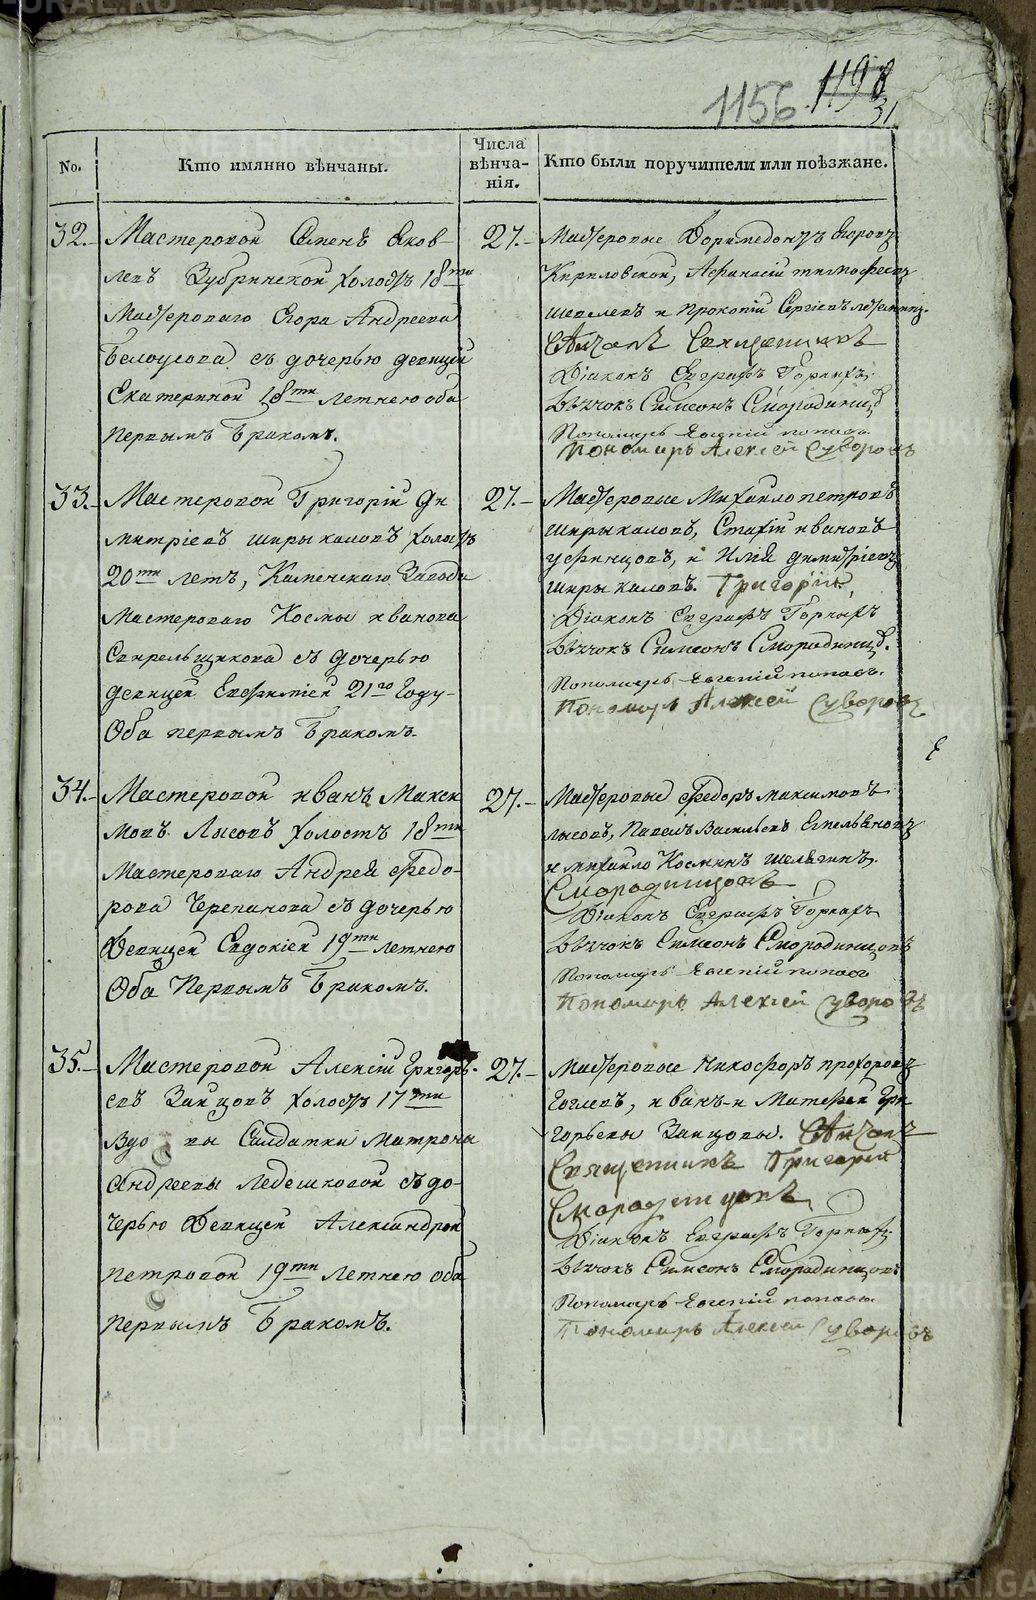 1156 1198
31
No.
Кто имянно вѣнчаны.
Числа вѣнча-
нія.
Кто были поручители или поѣзжане.
32.
Мастеровой Сименъ Яков-
левъ Зубринской холостъ 18ти
Мастероваго Егора Андреева
Белоусова съ дочерью девицей
Екатериной 18ти летнею оба
первымъ бракомъ.
27.
Мастеровые Доримедонтъ Егоровъ
Кириловской, Афанасій тимофеевъ
шевелевъ и прокопій Сергіевъ
Священникъ
Діаконъ Евграфъ
Дьячокъ Симеонъ Смородинцо
Пономарь Евгеній поповъ
Пономарь Алексѣй Суворовъ
33.
Мастеровой Григорій Дм
митріевъ ширыкаловъ холостъ
20ти летъ, Каменскаго Завода
Мастероваго Космы иванова
съ дочерью
девицей Евфиміей 21го Году
Оба первымъ бракомъ.
27.
Мастеровые Михайло петровъ
ширыкаловъ, Стахій ивановъ
уфинцовъ, и Илія димитріевъ
ширыкаловъ. Григорій
Діаконъ Евграфъ
Дьячокъ Симеонъ Смородинцо.
Пономарь Евгеній поповъ.
Пономарь Алексѣй Суворовъ
34.
Мастеровой иванъ Макси
мовъ Лысовъ холостъ 18ти
Мастероваго Андрей Федо-
рова Черепанова съ дочерью
девицей Евдокіей 19ти летнею
Оба первымъ бракомъ.
27.
Мастеровые Федоръ максимовъ
лысовъ, Павелъ Васильевъ Емельяновъ
и михайло Косминъ шелягинъ.
Смородинцовъ
Діаконъ Евграфъ
Дьячокъ Симеонъ Смородинцовъ
Пономарь Евгеній поповъ
Пономарь Алексѣй Суворовъ
35.
Мастеровой Алексій Григорь-
евъ Заицовъ холостъ 17ти
Вдо вы Салдатки Матроны
Андреевы Ледешковой съ до-
черью девицей Александрой
петровой 19ти летнею оба
первымъ бракомъ.
27.
Мастеровые Никифоръ прохоровъ
Гоглевъ, иванъ и Матфей Гри
горьевы Заицовы.
Священникъ Григорій
Смородинцовъ
Діаконъ Евграфъ
Дьячокъ Симеонъ Смородинцовъ
Пономарь Евгеній поповъ
Пономарь Алексѣй Суворовъ
METRIKI.GASO-URAL.RU